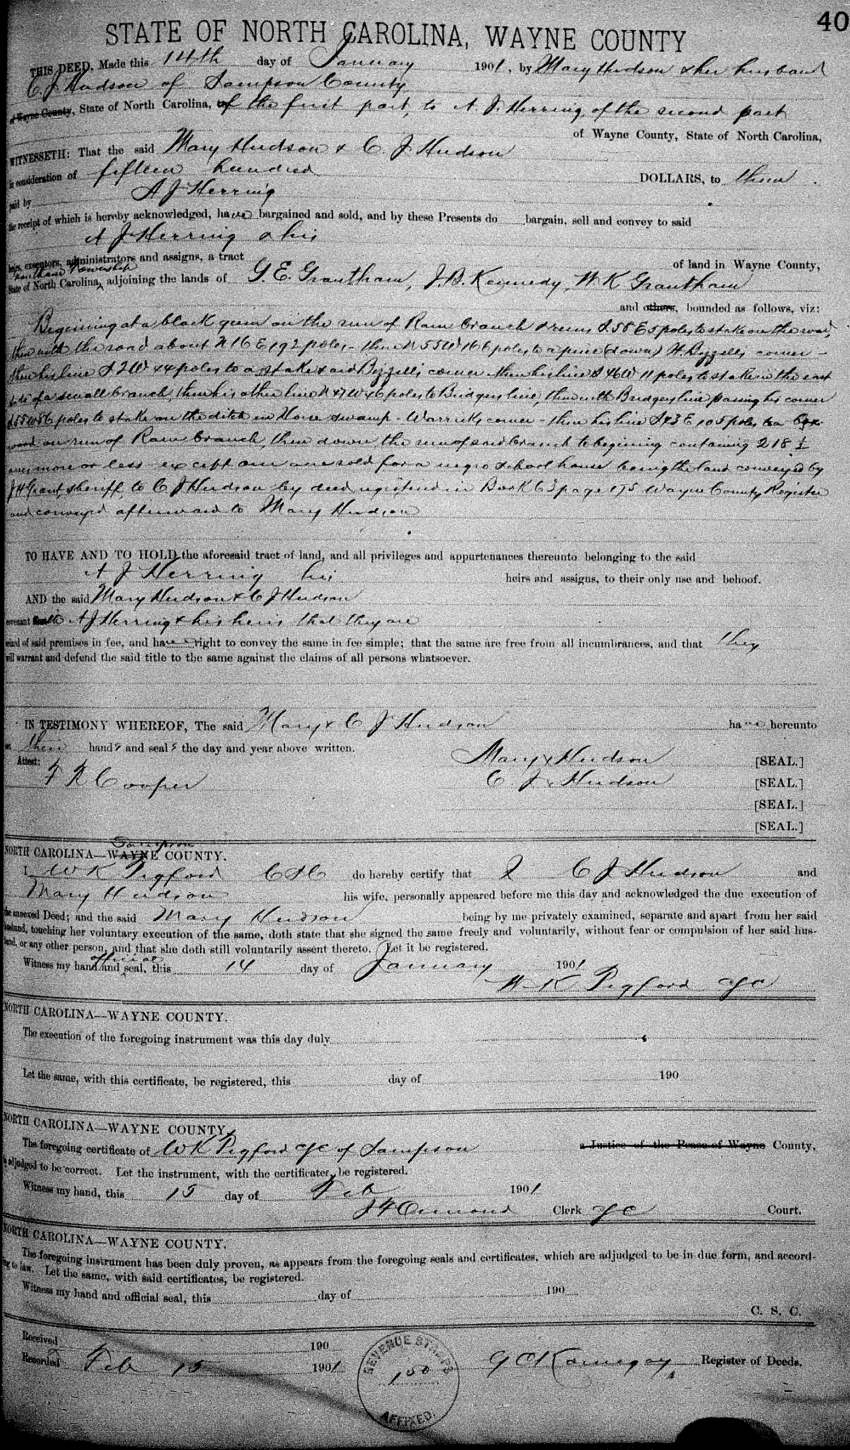 40
STATE OF NORTH CAROLINA, WAYNE COUNTY
THIS DEED, Made this 14th day of January 1901, by Mary Hudson & her husband
C. J. Hudson of Sampson County
of Wayne County, State of North Carolina, of the first part, to A. J. Herring, of the second part
of Wayne County, State of North Carolina,
WITNESSETH: That the said Mary Hudson & C. J. Hudson
in consideration of fifteen hundred DOLLARS, to them
paid by A J Herring
the receipt of which is hereby acknowledged, have bargained and sold, and by these Presents do bargain, sell and convey to said
A J Herring & his
heirs, executors, administrators and assigns, a tract of land in Wayne County,
Township
State of North Carolina, adjoining the lands of G. E. Grantham, J. B. Kennedy, W K Grantham
and others, bounded as follows, viz:
Beginning at a black gum on the run of Rain branch & runs S 55 E 5 poles to stake on the road,
then with the road about N 16 E 192 poles - then N 55 W 166 poles to a pine (down) H. Bizzell's corner -
then his line S 2 W 44 poles to a stake & said Bizzell's corner - then his line S 46 W 11 poles to stake in the east
side of a small branch, then his other line N 47 W 46 poles to Bridgers line, then with Bridgers line passing his corner
S 55 W 56 poles to stake on the ditch in Horse swamp - Warricks corner - then his line S 43 E 105 poles to a
on run of Rain branch, then down the run of said branch to beginning containing 218 ½
acres more or less - except one acre sold for a negro school house being the land conveyed by
J H Grant, sheriff, to C J Hudson by deed registered in Book 63 page 175 Wayne County Register
and conveyed afterward to Mary Hudson
TO HAVE AND TO HOLD the aforesaid tract of land, and all privileges and appurtenances thereunto belonging to the said
A J Herring his heirs and assigns, to their only use and behoof.
AND the said Mary Hudson & C J Hudson
covenant with A J Herring & his heirs that they are
seized of said premises in fee, and have right to convey the same in fee simple; that the same are free from all incumbrances, and that they
will warrant and defend the said title to the same against the claims of all persons whatsoever.
IN TESTIMONY WHEREOF, The said Mary & C J Hudson have hereunto
set their hands and seals the day and year above written.
Attest: Mary x Hudson [SEAL.]
F R Cooper C J x Hudson [SEAL.]
[SEAL.]
[SEAL.]
Sampson
NORTH CAROLINA—WAYNE COUNTY.
I W K Pigford CSC do hereby certify that C J Hudson and
Mary Hudson his wife, personally appeared before me this day and acknowledged the due execution of
the annexed Deed; and the said Mary Hudson being by me privately examined, separate and apart from her said
husband, touching her voluntary execution of the same, doth state that she signed the same freely and voluntarily, without fear or compulsion of her said hus-
band, or any other person, and that she doth still voluntarily assent thereto. Let it be registered.
official
Witness my hand and seal, this 14 day of January 1901
W K Pigford CSC
NORTH CAROLINA—WAYNE COUNTY.
The execution of the foregoing instrument was this day duly
Let the same, with this certificate, be registered, this day of 190
NORTH CAROLINA—WAYNE COUNTY,
The foregoing certificate of W K Pigford CSC of Sampson a Justice of the Peace of Wayne County,
is adjudged to be correct. Let the instrument, with the certificate, be registered.
Witness my hand, this 15 day of Feb 1901
J F Ormond Clerk SC Court.
NORTH CAROLINA—WAYNE COUNTY.
The foregoing instrument has been duly proven, as appears from the foregoing seals and certificates, which are adjudged to be in due form, and accord-
ing to law. Let the same, with said certificates, be registered.
Witness my hand and official seal, this day of 190
C. S. C.
Received 190
Recorded Feb 15 1901 Register of Deeds.
REVENUE STAMPS
1.50
AFFIXED.